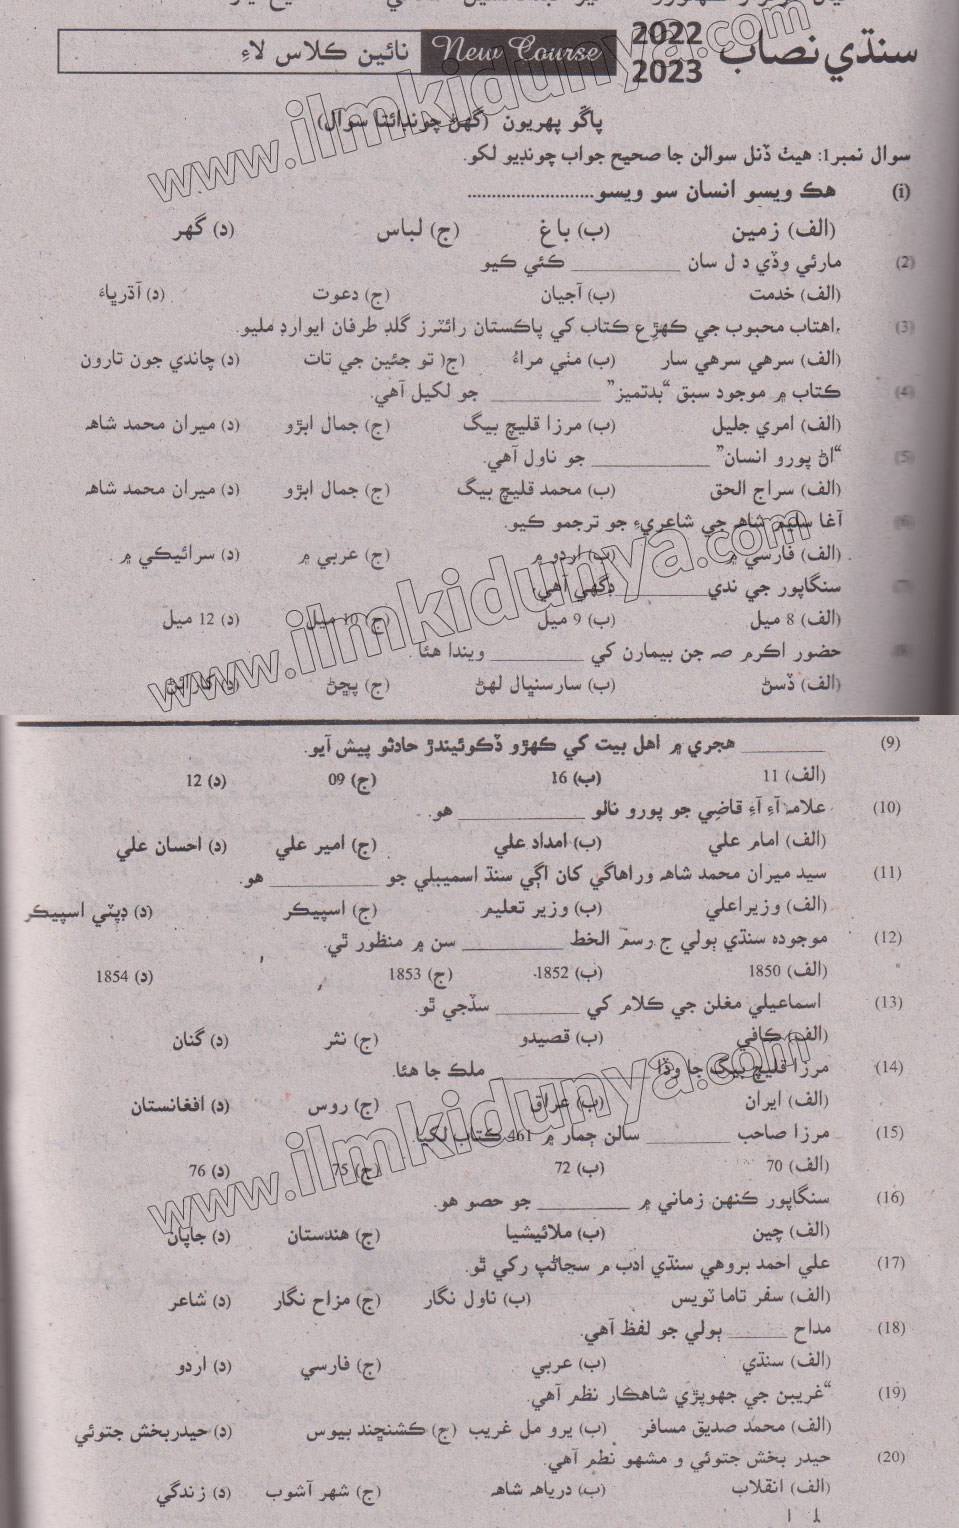 سنڌي نصاب 2022 2023 New Course نائين ڪلاس لاءِ
ڀاڱو پهريون (گهڻ چونڊائتا سوال)
سوال نمبر1: هيٺ ڏنل سوالن جا صحيح جواب چونڊيو لکو.
(i) هڪ ويسو انسان سو ويسو.........................
(الف) زمين (ب) باغ (ج) لباس (د) گهر
(2) مارئي وڏي د ل سان ________ ڪئي ڪيو
(الف) خدمت (ب) آجيان (ج) دعوت (د) آڌرڀاءُ
(3) مهتاب محبوب جي ڪهڙِ ع ڪتاب کي پاڪستان رائٽرز گلڊ طرفان ايوارڊ مليو.
(الف) سرهي سرهي سار (ب) مٺي مراءُ (ج( تو جئين جي تات (د) چاندي جون تارون
(4) ڪتاب ۾ موجود سبق “بدتميز” ________ جو لکيل آهي.
(الف) امري جليل (ب) مرزا قليچ بيگ (ج) جمال ابڙو (د) ميران محمد شاهه
(5) “اڻ پورو انسان” ________ جو ناول آهي.
(الف) سراج الحق (ب) محمد قليچ بيگ (ج) جمال ابڙو (د) ميران محمد شاهه
(6) آغا سليم شاهه جي شاعريءِ جو ترجمو ڪيو.
(الف) فارسي ۾ (ب) اردو ۾ (ج) عربي ۾ (د) سرائيڪي ۾ .
(7) سنگاپور جي ندي ________ ڊگهي آهي
(الف) 8 ميل (ب) 9 ميل (ج) 10 ميل (د) 12 ميل
حضور اڪرم صه جن بيمارن کي ________ ويندا هئا .
(الف) ڏسڻ (ب) سارسنڀال لهڻ (ج) پڇڻ (د)
(9) ________ هجري ۾ اهل بيت کي ڪهڙو ڏکوئيندڙ حادثو پيش آيو.
(الف) 11 (ب) 16 (ج) 09 (د) 12
(10) علامه آءِ آءِ قاضي جو پورو نالو ________ هو.
(الف) امام علي (ب) امداد علي (ج) امير علي (د) احسان علي
(11) سيد ميران محمد شاهه ورهاڱي کان اڳي سنڌ اسيمبلي جو ________ هو.
(الف) وزيراعلي (ب) وزير تعليم (ج) اسپيڪر (د) ڊپٽي اسپيڪر
(12) موجوده سنڌي ٻولي ج رسم الخط ________ سن ۾ منظور ٿي.
(الف) 1850 (ب) 1852 (ج) 1853 (د) 1854
(13) اسماعيلي مغلن جي ڪلام کي ________ سڏجي ٿو.
(الف) ڪافي (ب) قصيدو (ج) نثر (د) گنان
(14) مرزا قليچ بيگ جا وڏا ________ ملڪ جا هئا.
(الف) ايران (ب) عراق (ج) روس (د) افغانستان
(15) مرزا صاحب ________ سالن ڄمار ۾ 461 ڪتاب لکيا.
(الف) 70 (ب) 72 (ج) 75 (د) 76
(16) سنگاپور ڪنهن زماني ۾ ________ جو حصو هو.
(الف) چين (ب) ملائيشيا (ج) هندستان (د) جاپان
(17) علي احمد بروهي سنڌي ادب ۾ سڃاڻپ رکي ٿو.
(الف) سفر تاما ٽويس (ب) ناول نگار (ج) مزاح نگار (د) شاعر
(18) مداح ______ ٻولي جو لفظ آهي.
(الف) سنڌي (ب) عربي (ج) فارسي (د) اردو
(19) “غريبن جي جهوپڙي شاهڪار نظم آهي.
(الف) محمد صديق مسافر (ب) يرو مل غريب (ج) ڪشنچند بيوس (د) حيدربخش جتوئي
(20) حيدر بخش جتوئي و مشهو نظم آهي.
(الف) انقلاب (ب) درياهه شاهه (ج) شهر آشوب (د) زندگي
www.ilmkidunya.com
www.ilmkidunya.com
www.ilmkidunya.com